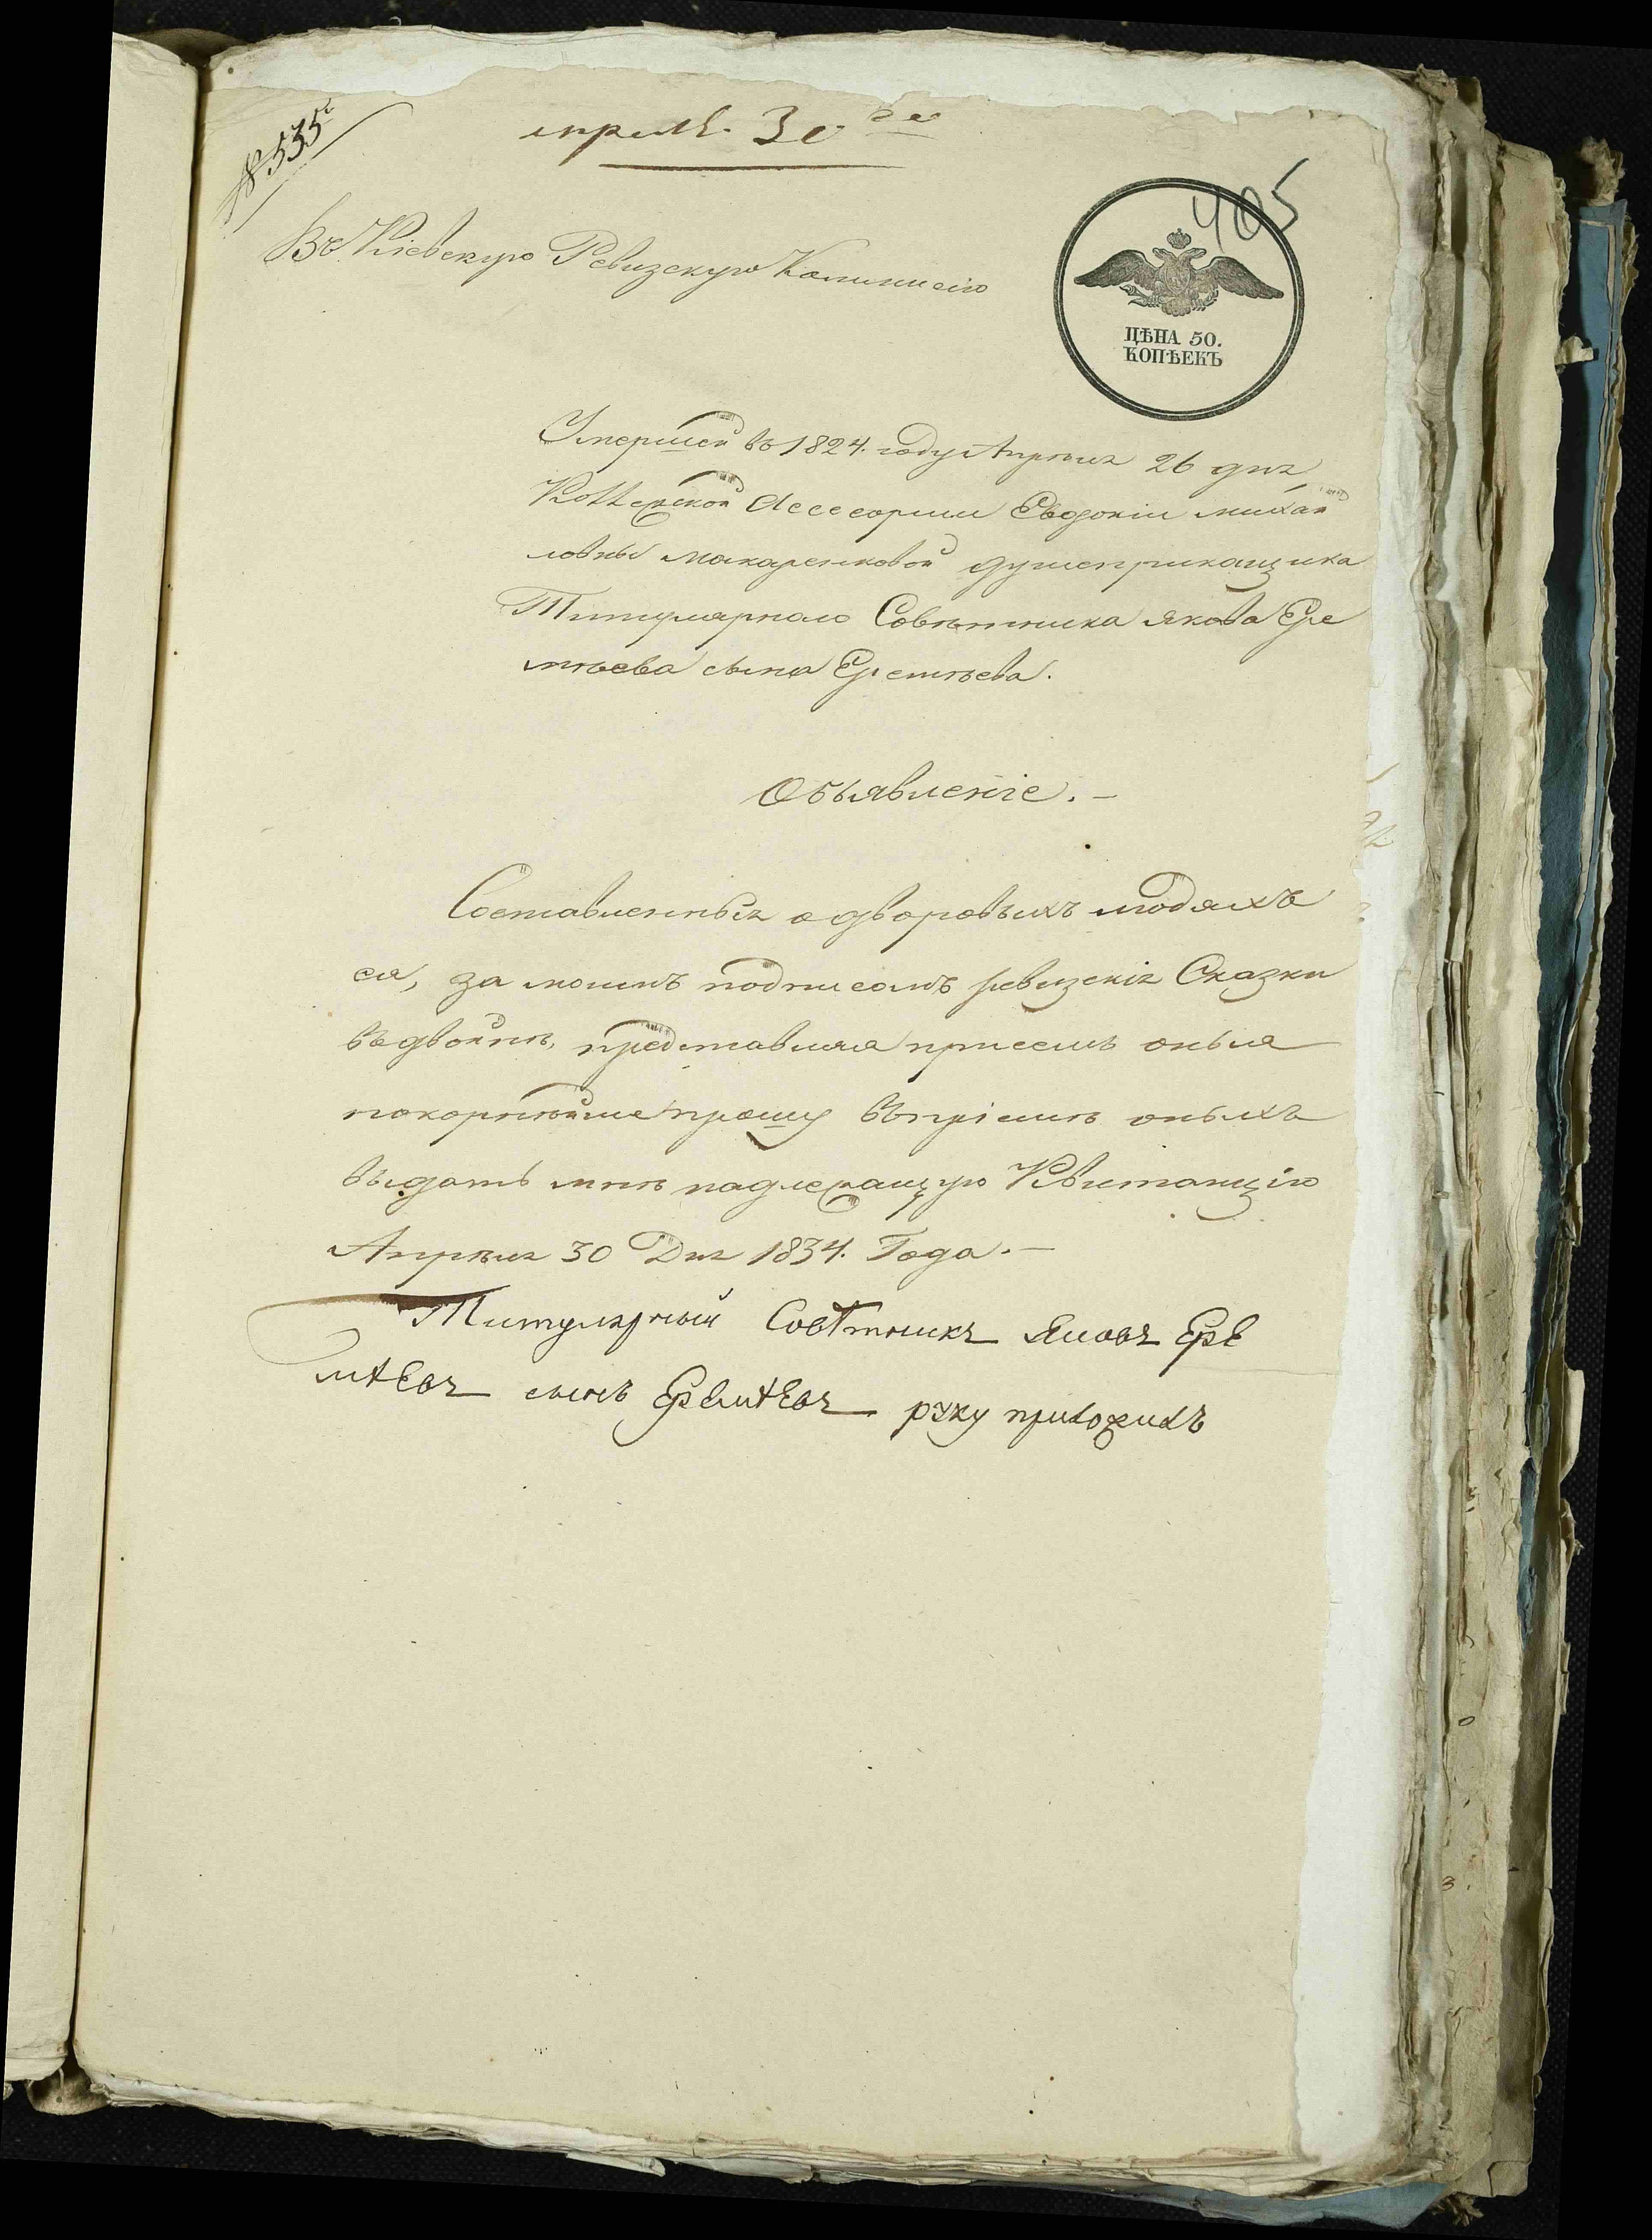 № 535
апрель. 30го
405
Въ Кіевскую Ревизскую Коммисію
ЦѢНА 50.
КОПѢЕКЪ
Умершей въ 1824. году Апрѣля 26 дня
Коллежской Ассесорши Евдокіи михай
ловны макаренковой душеприкащика
Титулярнаго Совѣтника Якова Ере
мѣева сына Еремѣева.
Объявленіе. —
Составленныя о дворовыхъ людяхъ
ея, за моимъ подписомъ ревизскія Сказки
въ двойнѣ, представляя присемъ оныя
покорнѣйше прошу въ пріемѣ оныхъ
выдать мнѣ надлежащую Квитанцію
Апрѣля 30 Дня 1834. Года. —
Титулярный Совѣтникъ Яковъ Ере
мѣевъ сынъ Еремѣевъ руку приложилъ